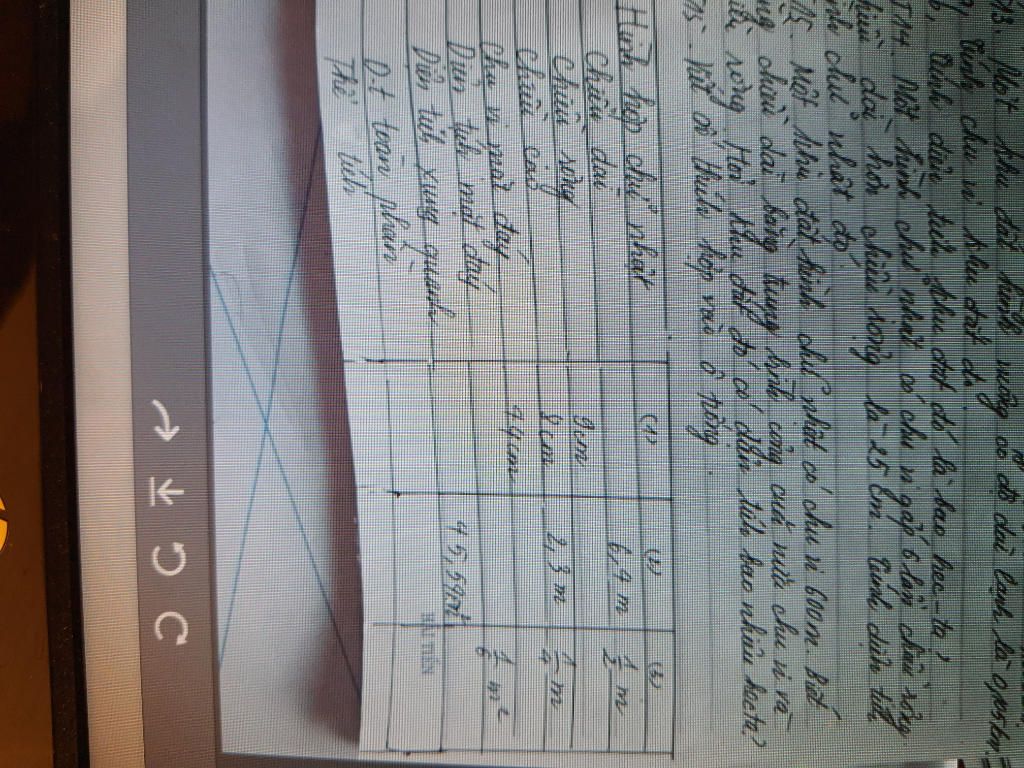 Một khu đất hình vuông có độ dài cạnh là
tính chu vi khu đất đó.
tính diện tích khu đất đó là bao héc-ta?
Một hình chữ nhật có chu vi gấp 6 lần chiều rộng
chiều dài hơn chiều rộng là 25 cm. Tính diện tích
chữ nhật đó.
Một khu đất hình chữ nhật có chu vi 600m. biết
chiều dài bằng trung bình cộng của nửa chu vi và
rộng. Hỏi khu đất đó có diện tích bao nhiêu hecta?
Viết số thích hợp vào ô trống.
Hình hộp chữ nhật (1) (2) (3)
Chiều dài 6,4 m 1/2 m
Chiều rộng 9cm
Chiều cao 8cm 2,3 m 1/4 m
Chu vi mặt đáy 44cm
Diện tích mặt đáy 1/6 m²
Diện tích xung quanh 45,54m²
D.t toàn phần
Thể tích